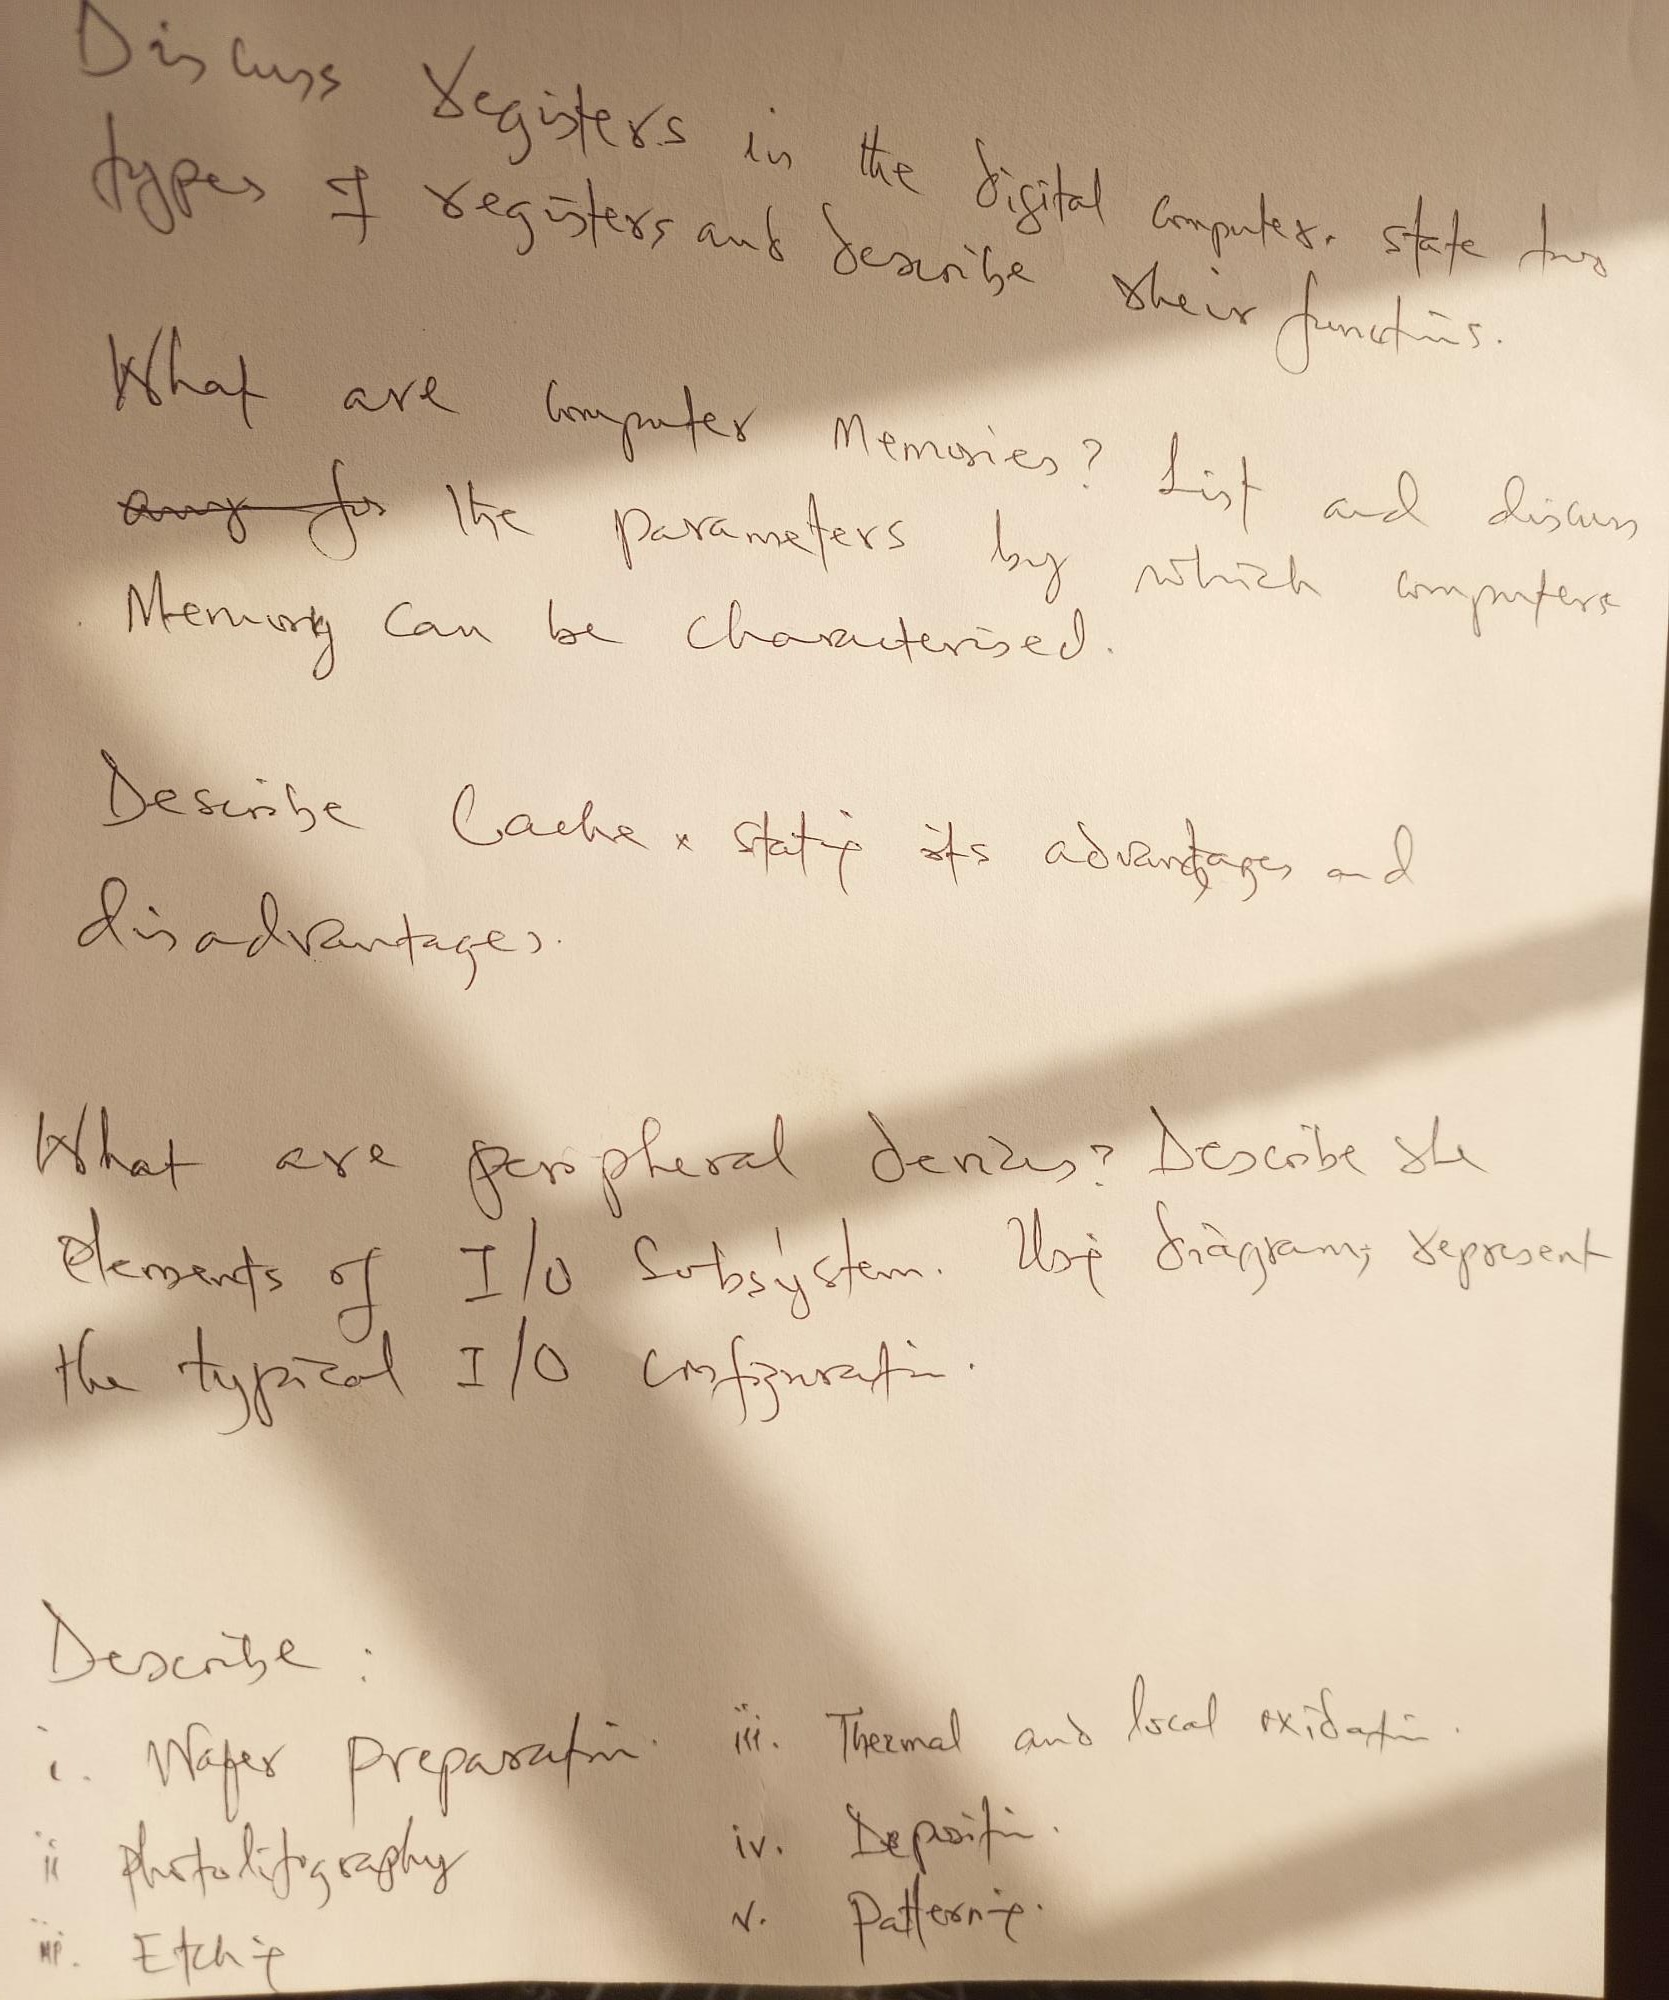 Discuss registers in the digital computer. state two
types of registers and describe their functions.
What are computer Memories? List and discuss
any for the parameters by which computers
Memory can be characterised.
Describe Cache stating its advantages and
disadvantages.
What are peripheral devices? Describe the
elements of I/O Subsystem. Using diagrams, represent
the typical I/O configuration.
Describe :
i. Wafer preparation.
ii photolitography
iii. Etching
iii. Thermal and local oxidation.
iv. Deposition.
v. Patterning.